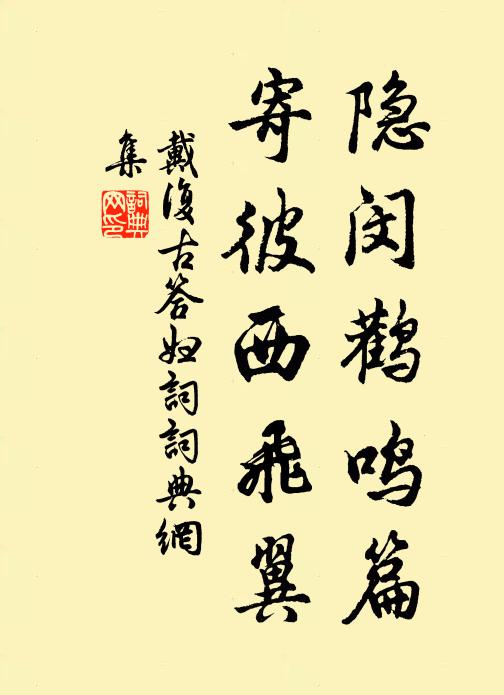 隐闵鹳鸣篇
寄彼西飛翼
戴復古答妇詞詞典網
集
詞典网印